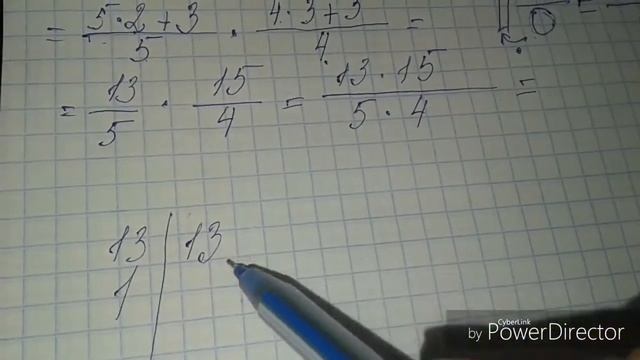 = 5·2+3/5 · 4·3+3/4 =
= 13/5 · 15/4 = 13·15/5·4 =
13 | 13
1 |
CyberLink
by PowerDirector